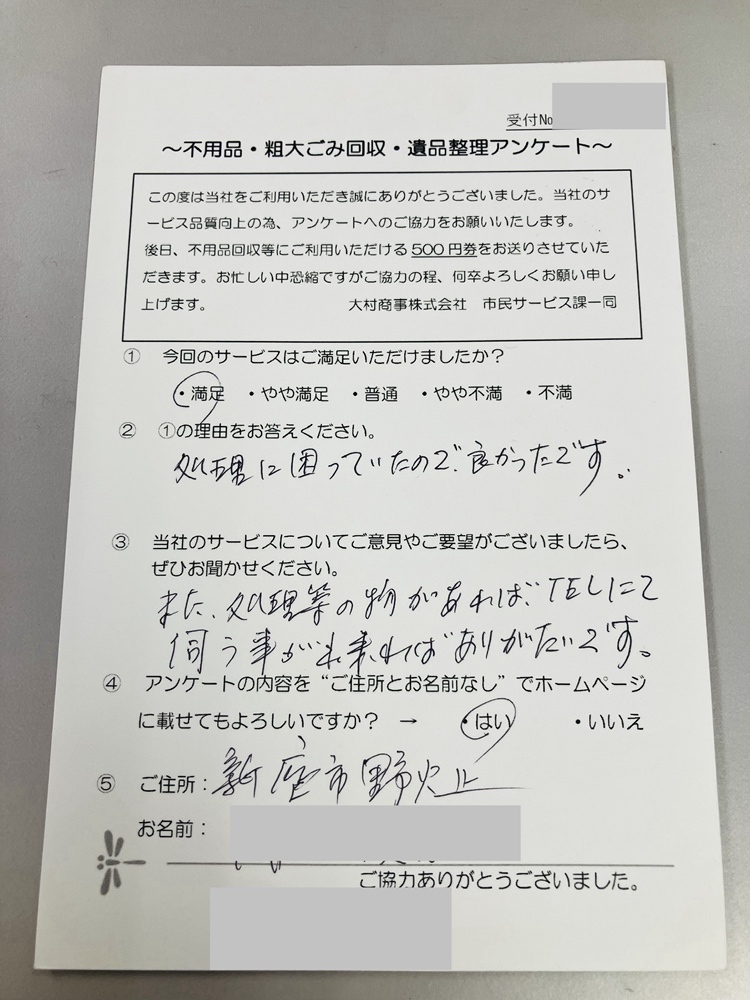 受付No
～不用品・粗大ごみ回収・遺品整理アンケート～
この度は当社をご利用いただき誠にありがとうございました。当社のサ
ービス品質向上の為、アンケートへのご協力をお願いいたします。
後日、不用品回収等にご利用いただける500円券をお送りさせていた
だきます。お忙しい中恐縮ですがご協力の程、何卒よろしくお願い申し
上げます。 大村商事株式会社 市民サービス課一同
① 今回のサービスはご満足いただけましたか？
・満足 ・やや満足 ・普通 ・やや不満 ・不満
② ①の理由をお答えください。
処理に困っていたので、良かったです。
③ 当社のサービスについてご意見やご要望がございましたら、
ぜひお聞かせください。
また、処理等の物があれば、TELにて
伺う事が出来ればありがたいです。
④ アンケートの内容を“ご住所とお名前なし”でホームページ
に載せてもよろしいですか？ → ・はい ・いいえ
⑤ ご住所：新座市野火止
お名前：
ご協力ありがとうございました。